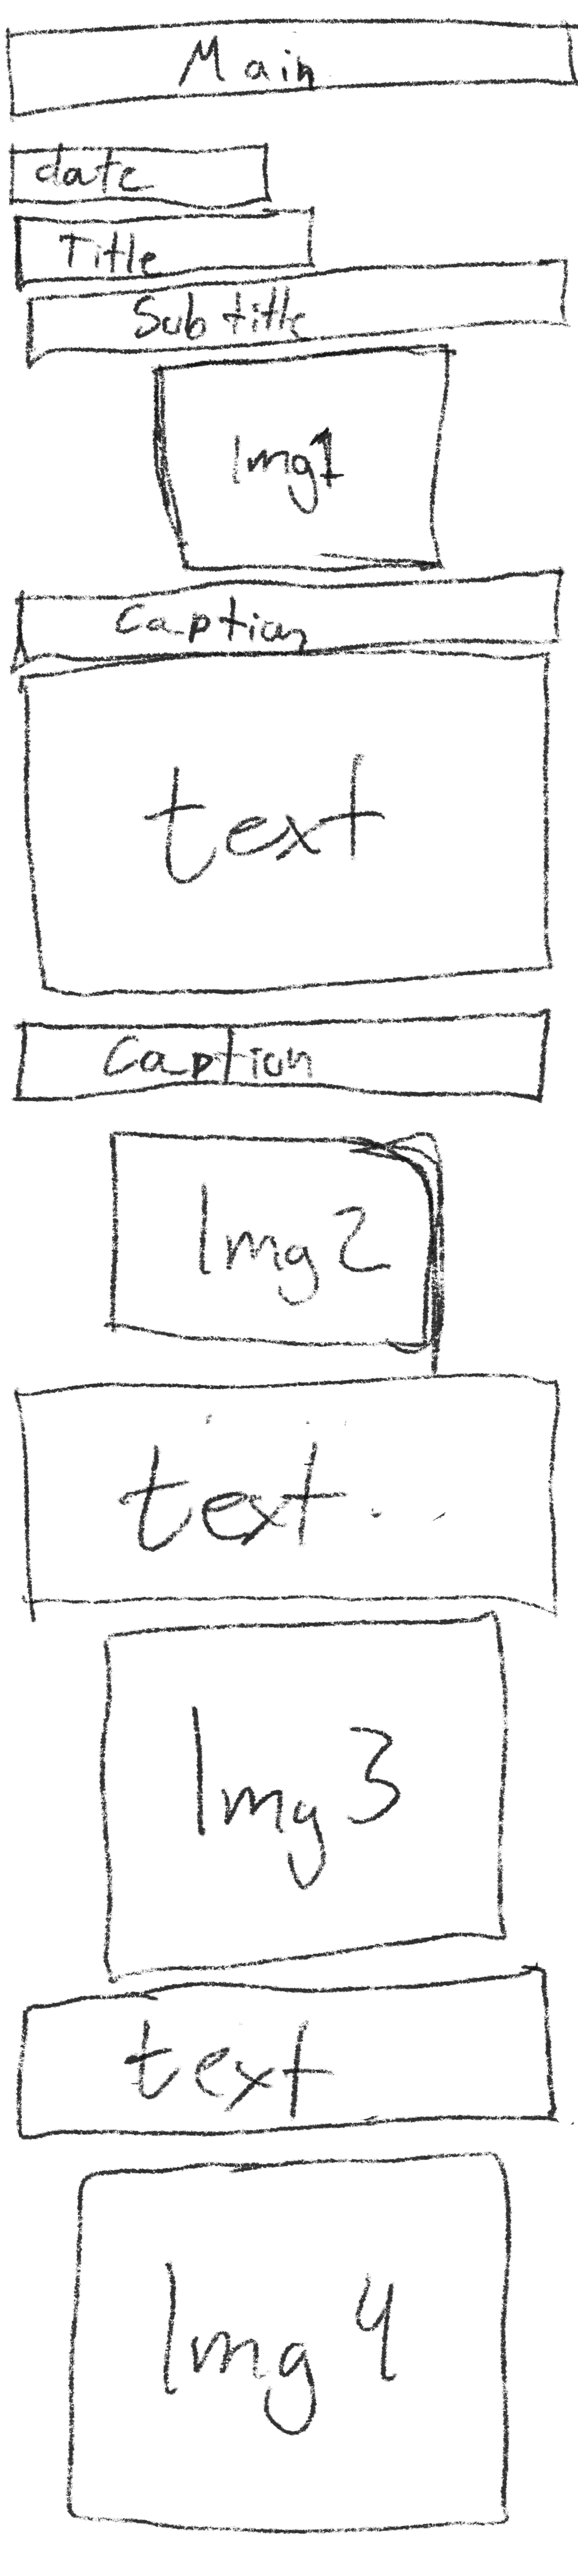 Main
date
Title
Subtitle
Img1
Caption
text
Caption
Img 2
text...
Img 3
text
Img 4